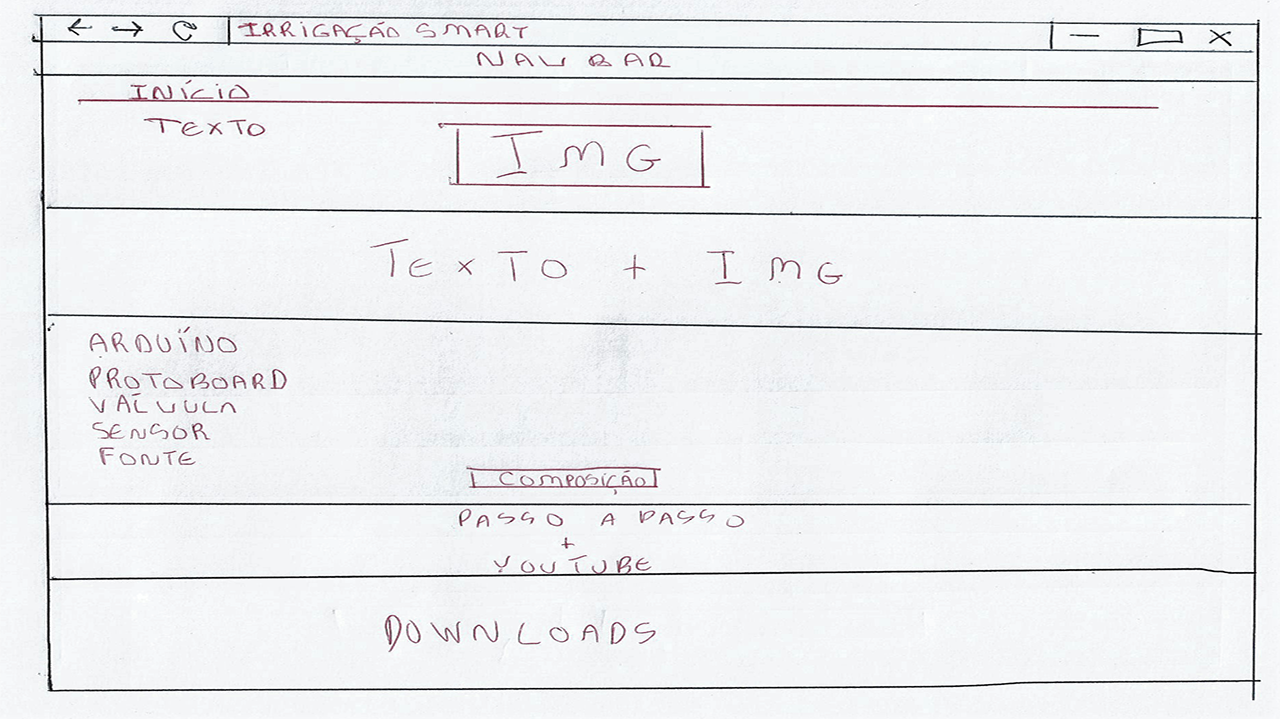 IRRIGAÇÃO SMART
NAV BAR
INÍCIO
TEXTO
IMG
TEXTO + IMG
ARDUÍNO
PROTOBOARD
VÁLVULA
SENSOR
FONTE
COMPOSIÇÃO
PASSO A PASSO
+
YOUTUBE
DOWNLOADS